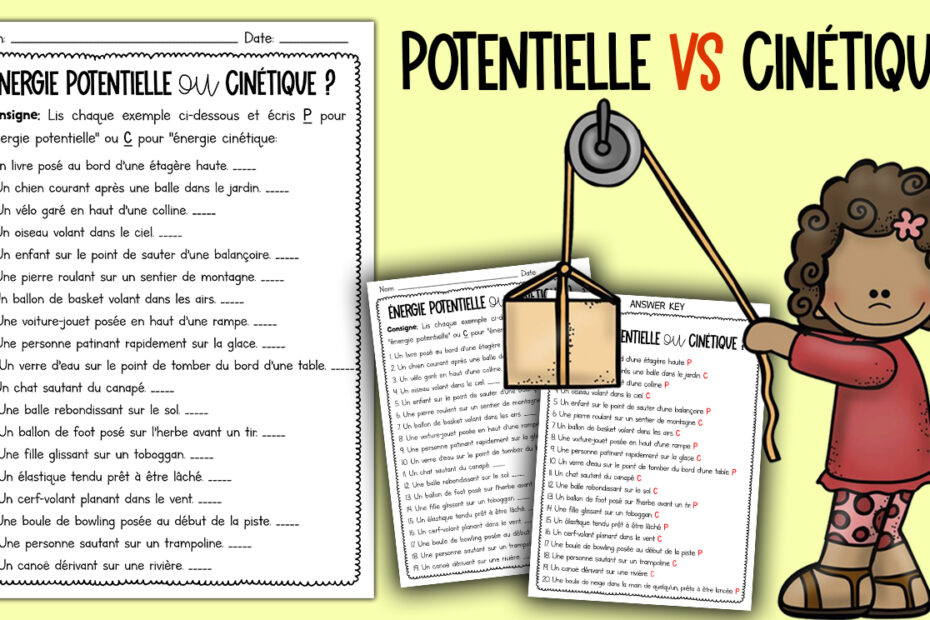 Date:
POTENTIELLE VS CINÉTIQU
NERGIE POTENTIELLE ou CINÉTIQUE ?
nsigne: Lis chaque exemple ci-dessous et écris P pour
ergie potentielle" ou C pour "énergie cinétique:
n livre posé au bord d'une étagère haute. _____
Un chien courant après une balle dans le jardin. _____
Un vélo garé en haut d'une colline. _____
Un oiseau volant dans le ciel. _____
Un enfant sur le point de sauter d'une balançoire. _____
Une pierre roulant sur un sentier de montagne. _____
Un ballon de basket volant dans les airs. _____
Une voiture-jouet posée en haut d'une rampe. _____
Une personne patinant rapidement sur la glace. _____
Un verre d'eau sur le point de tomber du bord d'une table. _____
Un chat sautant du canapé. _____
Une balle rebondissant sur le sol. _____
Un ballon de foot posé sur l'herbe avant un tir. _____
Une fille glissant sur un toboggan. _____
Un élastique tendu prêt à être lâché. _____
Un cerf-volant planant dans le vent. _____
Une boule de bowling posée au début de la piste. _____
Une personne sautant sur un trampoline. _____
Un canoë dérivant sur une rivière. _____
Nom: Date:
ÉNERGIE POTENTIELLE ou
Consigne: Lis chaque exemple ci-
"énergie potentielle" ou C pour "éner
1. Un livre posé au bord d'une étagère
2. Un chien courant après une balle
3. Un vélo garé en haut d'une colline.
4. Un oiseau volant dans le ciel. _____
5. Un enfant sur le point de sauter d'une
6. Une pierre roulant sur un sentier de
7. Un ballon de basket volant dans les airs. _____
8. Une voiture-jouet posée en haut d'une rampe
9. Une personne patinant rapidement sur la
10. Un verre d'eau sur le point de tomber du
11. Un chat sautant du canapé. _____
12. Une balle rebondissant sur le sol. _____
13. Un ballon de foot posé sur l'herbe avant
14. Une fille glissant sur un toboggan. _____
15. Un élastique tendu prêt à être lâché.
16. Un cerf-volant planant dans le vent. _____
17. Une boule de bowling posée au début
18. Une personne sautant sur un trampoline.
19. Un canoë dérivant sur une rivière. _____
ANSWER KEY
TENTIELLE ou CINÉTIQUE ?
bord d'une étagère haute P
après une balle dans le jardin. C
haut d'une colline P
4. Un oiseau volant dans le ciel C
5. Un enfant sur le point de sauter d'une balançoire P
6. Une pierre roulant sur un sentier de montagne. C
7. Un ballon de basket volant dans les airs C
8. Une voiture-jouet posée en haut d'une rampe. P
9. Une personne patinant rapidement sur la glace. C
10. Un verre d'eau sur le point de tomber du bord d'une table P
11. Un chat sautant du canapé C
12. Une balle rebondissant sur le sol C
13. Un ballon de foot posé sur l'herbe avant un tir P
14. Une fille glissant sur un toboggan. C
15. Un élastique tendu prêt à être lâché P
16. Un cerf-volant planant dans le vent C
17. Une boule de bowling posée au début de la piste P
18. Une personne sautant sur un trampoline C
19. Un canoë dérivant sur une rivière C
20. Une boule de neige dans la main de quelqu'un, prête à être lancée P